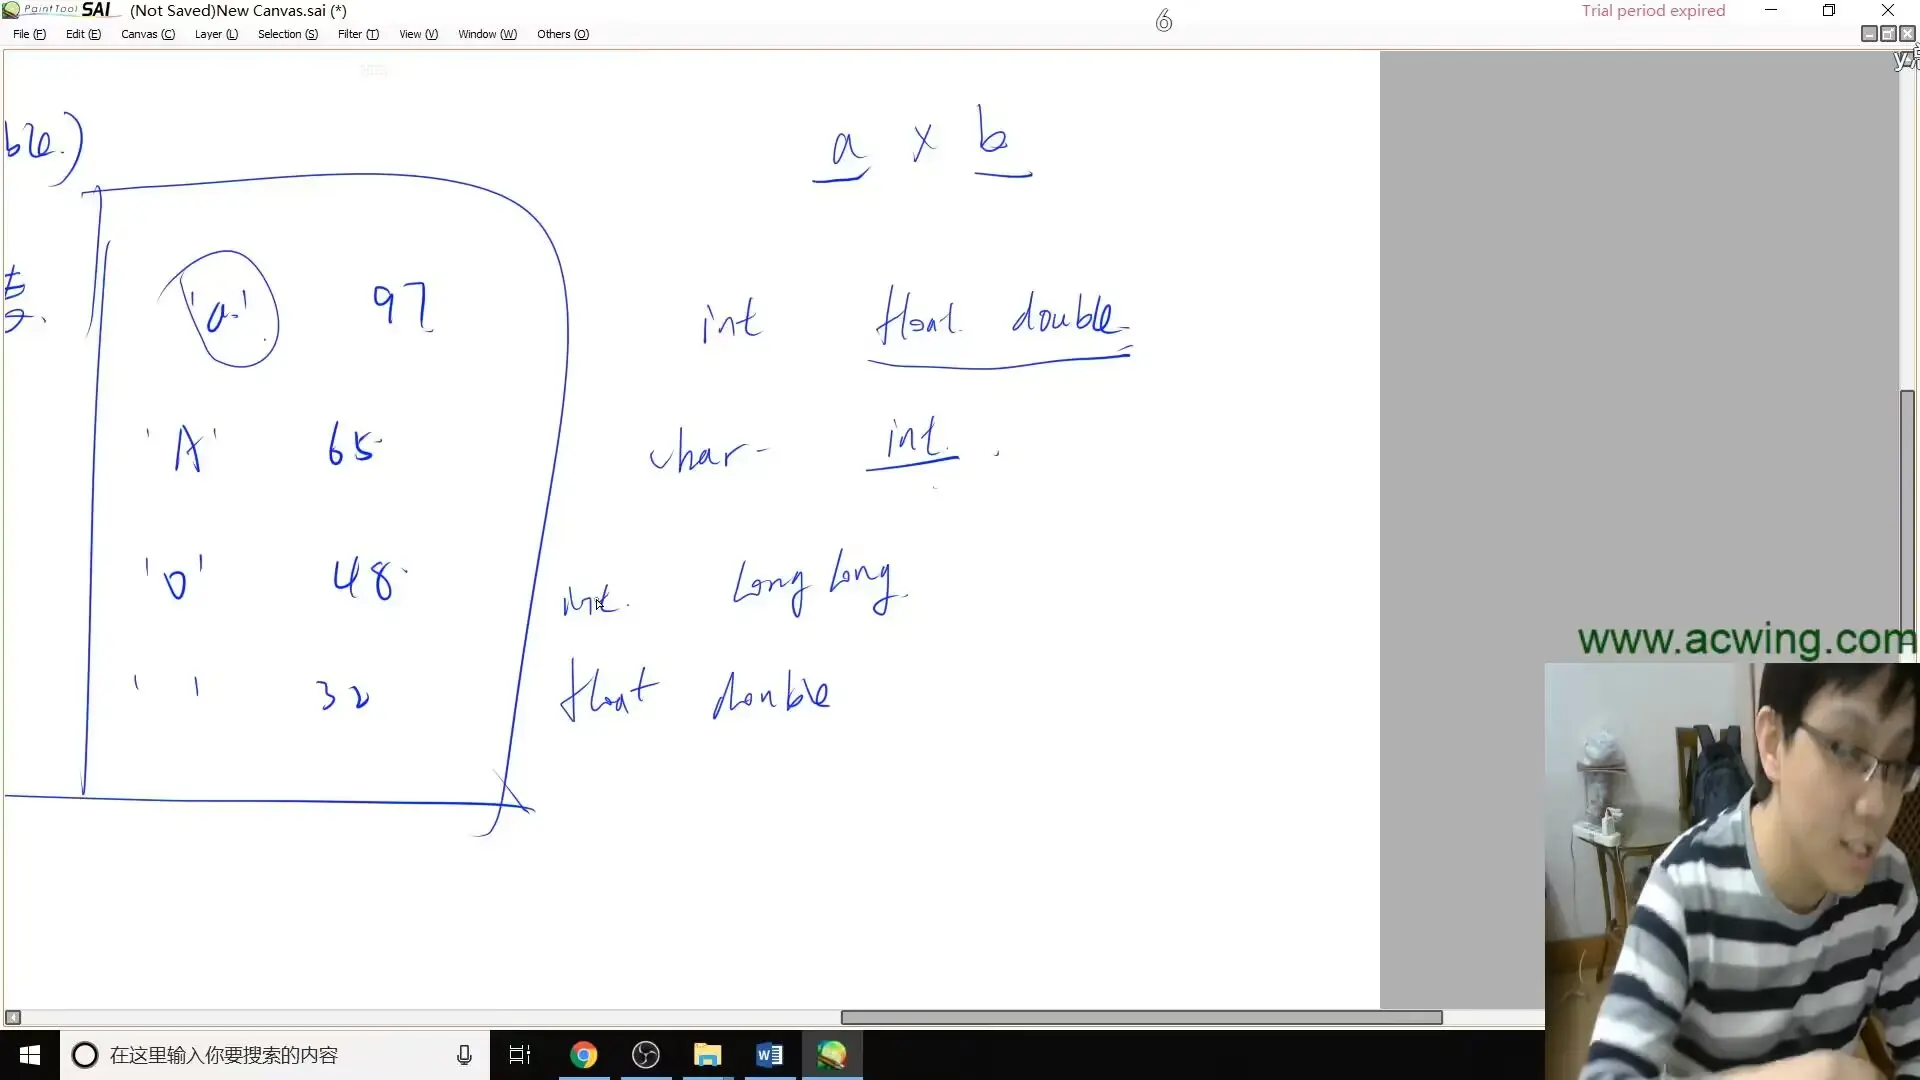 PaintTool SAI (Not Saved)New Canvas.sai (*)
6
Trial period expired
File (F) Edit (E) Canvas (C) Layer (L) Selection (S) Filter (T) View (V) Window (W) Others (O)
ble.)
a × b
'a' 97
int float double
'A' 65
char int
'0' 48
int long long
' ' 32
float double
www.acwing.com
在这里输入你要搜索的内容